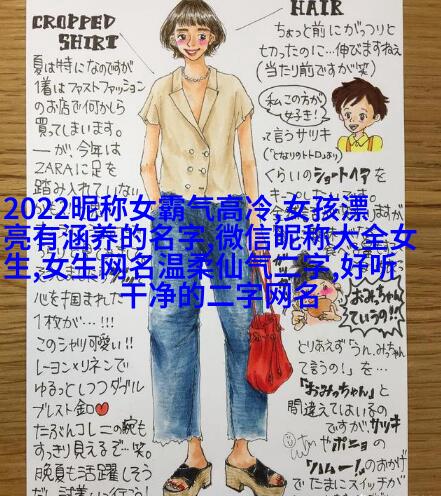 CROPPED
SHIRT
夏は特になのですが
1着はファストファッション
のお店で何かしら
買ってしまいます。
が、今年は
ZARAに足を
踏み入れていない
HAIR
ちょっと前にがっつりと
切ったのに…伸びますねぇ
(当たり前ですが笑)
私この方が
女好き!
って言うサツキ
(「となりのトトロ」より)
くらいのショートヘアを
2022昵称女霸气高冷,女孩漂
亮有涵养的名字,微信昵称大全女
生,女生网名温柔仙气二字,好听
干净的二字网名
1枚が…!!!
このシャリ可愛い!!
レーヨン×リネンで
ゆるっとしつつダブル
ブレスト金ロ♥
たぶんコレニの腕も
すっきり見えるぞ…笑。
晩夏も活躍しそう
おみっちゃん
ていうの!!
とりあえず「うん、みちゃん
て言うの!」を…
「おみっちゃん」と
間違えてはいるの
ですが、サツキ
やポニョの
「ハムー!」のおかげ
でたまにスイッチが